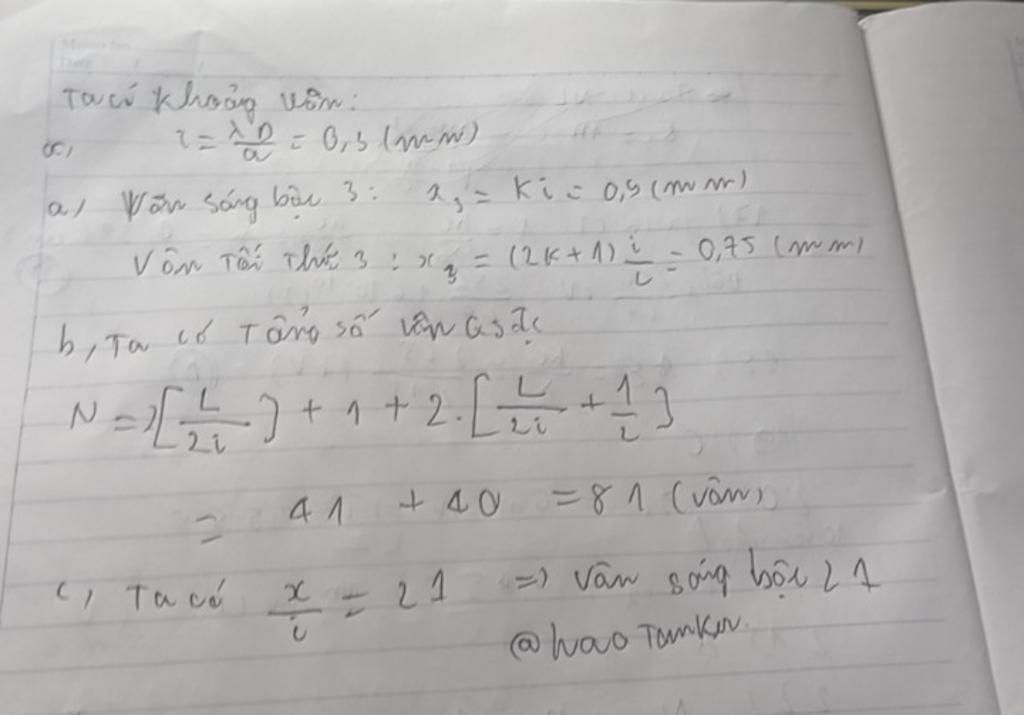 Ta có khoảng vân:
i = λD/a = 0,3 (mm)
a, Vân sáng bậc 3: x₃ = Ki = 0,9 (mm)
Vân Tối Thứ 3 : x₃ = (2K+1) i/2 = 0,75 (mm)
b, Ta có Tổng số vân a s đc
N = 2[L/2i] + 1 + 2.[L/2i + 1/2]
= 41 + 40 = 81 (vân)
c, Ta có x/i = 21 => Vân sáng bậc 21
@hao Tamker.